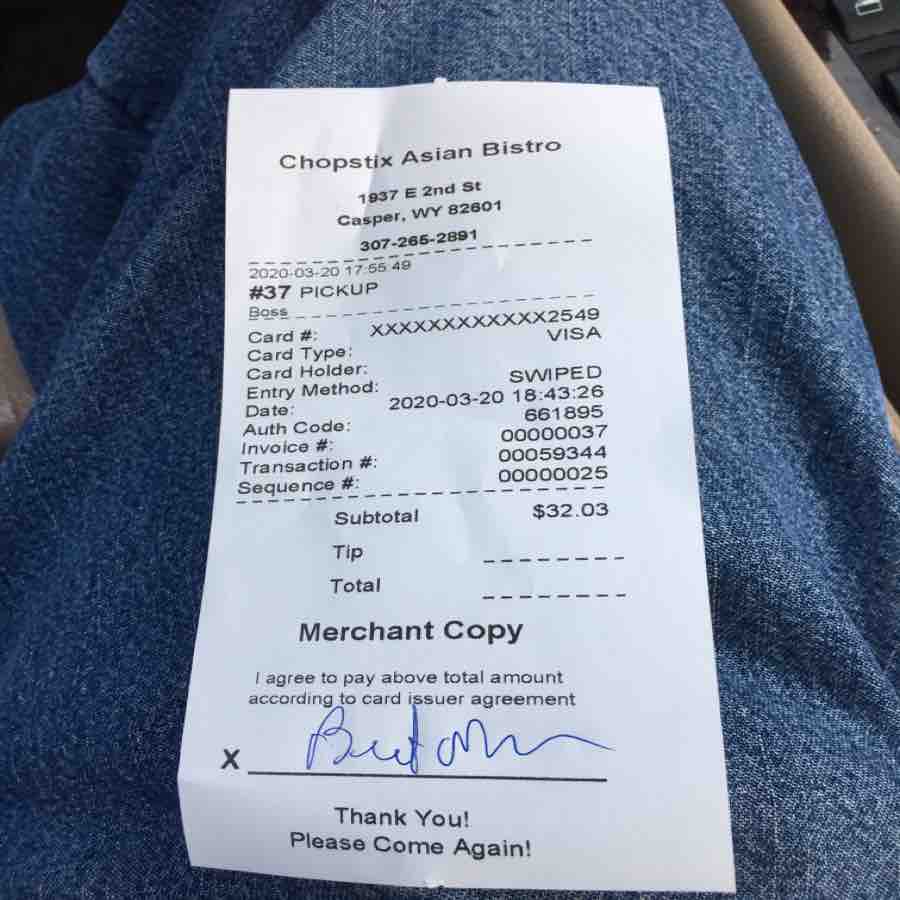 Chopstix Asian Bistro
1937 E 2nd St
Casper, WY 82601
307-265-2891
2020-03-20 17:55:49
#37 PICKUP
Boss
Card #: XXXXXXXXXXXX2549
Card Type: VISA
Card Holder:
Entry Method: SWIPED
Date: 2020-03-20 18:43:26
Auth Code: 661895
Invoice #: 00000037
Transaction #: 00059344
Sequence #: 00000025
Subtotal $32.03
Tip
Total
Merchant Copy
I agree to pay above total amount
according to card issuer agreement
X
Thank You!
Please Come Again!